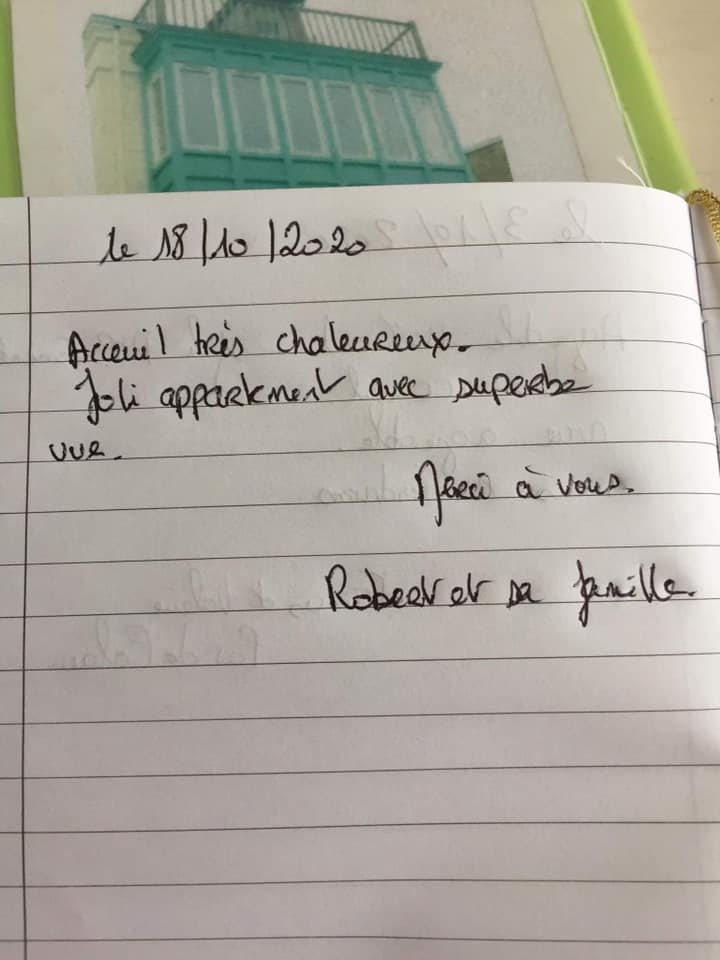 le 18/10/2020
Acceuil très chaleureux.
Joli appartement avec superbe
vue.
Merci à vous.
Robert et sa famille.